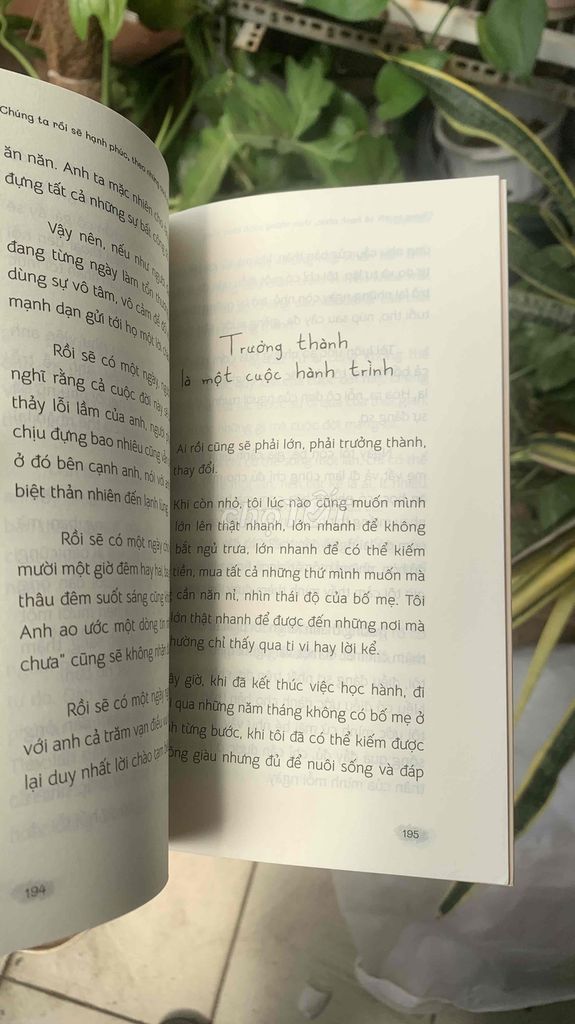 Chúng ta rồi sẽ hạnh phúc, theo những
ăn năn. Anh ta mặc nhiên cho
đựng tất cả những sự bất công
Vậy nên, nếu như người
đang từng ngày làm tổn thương
dùng sự vô tâm, vô cảm để
mạnh dạn gửi tới họ một lời
Rồi sẽ có một ngày,
nghĩ rằng cả cuộc đời này
thảy lỗi lầm của anh, người
chịu đựng bao nhiêu cũng
ở đó bên cạnh anh, nói với
biệt thản nhiên đến lạnh lùng
Rồi sẽ có một ngày
mười một giờ đêm hay hai,
thâu đêm suốt sáng cũng
Anh ao ước một dòng tin
chưa" cũng sẽ không nhận
Rồi sẽ có một ngày
với anh cả trăm vạn điều
lại duy nhất lời chào tạm
194
Trưởng thành
là một cuộc hành trình
Ai rồi cũng sẽ phải lớn, phải trưởng thành,
thay đổi.
Khi còn nhỏ, tôi lúc nào cũng muốn mình
lớn lên thật nhanh, lớn nhanh để không
bắt ngủ trưa, lớn nhanh để có thể kiếm
tiền, mua tất cả những thứ mình muốn mà
cần năn nỉ, nhìn thái độ của bố mẹ. Tôi
lớn thật nhanh để được đến những nơi mà
hường chỉ thấy qua ti vi hay lời kể.
ây giờ, khi đã kết thúc việc học hành, đi
qua những năm tháng không có bố mẹ ở
từng bước, khi tôi đã có thể kiếm được
ông giàu nhưng đủ để nuôi sống và đáp
195
chợ TỐT